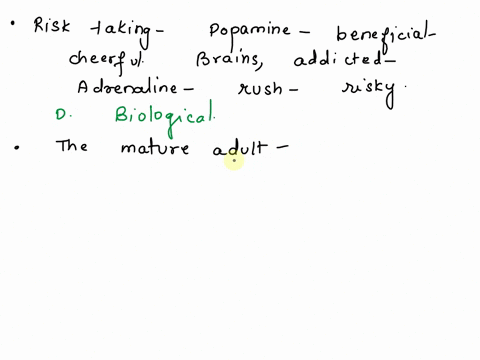 • Risk taking - Dopamine - beneficial -
cheerful. Brains, addicted -
Adrenaline - rush - risky.
D. Biological.
• The mature adult -